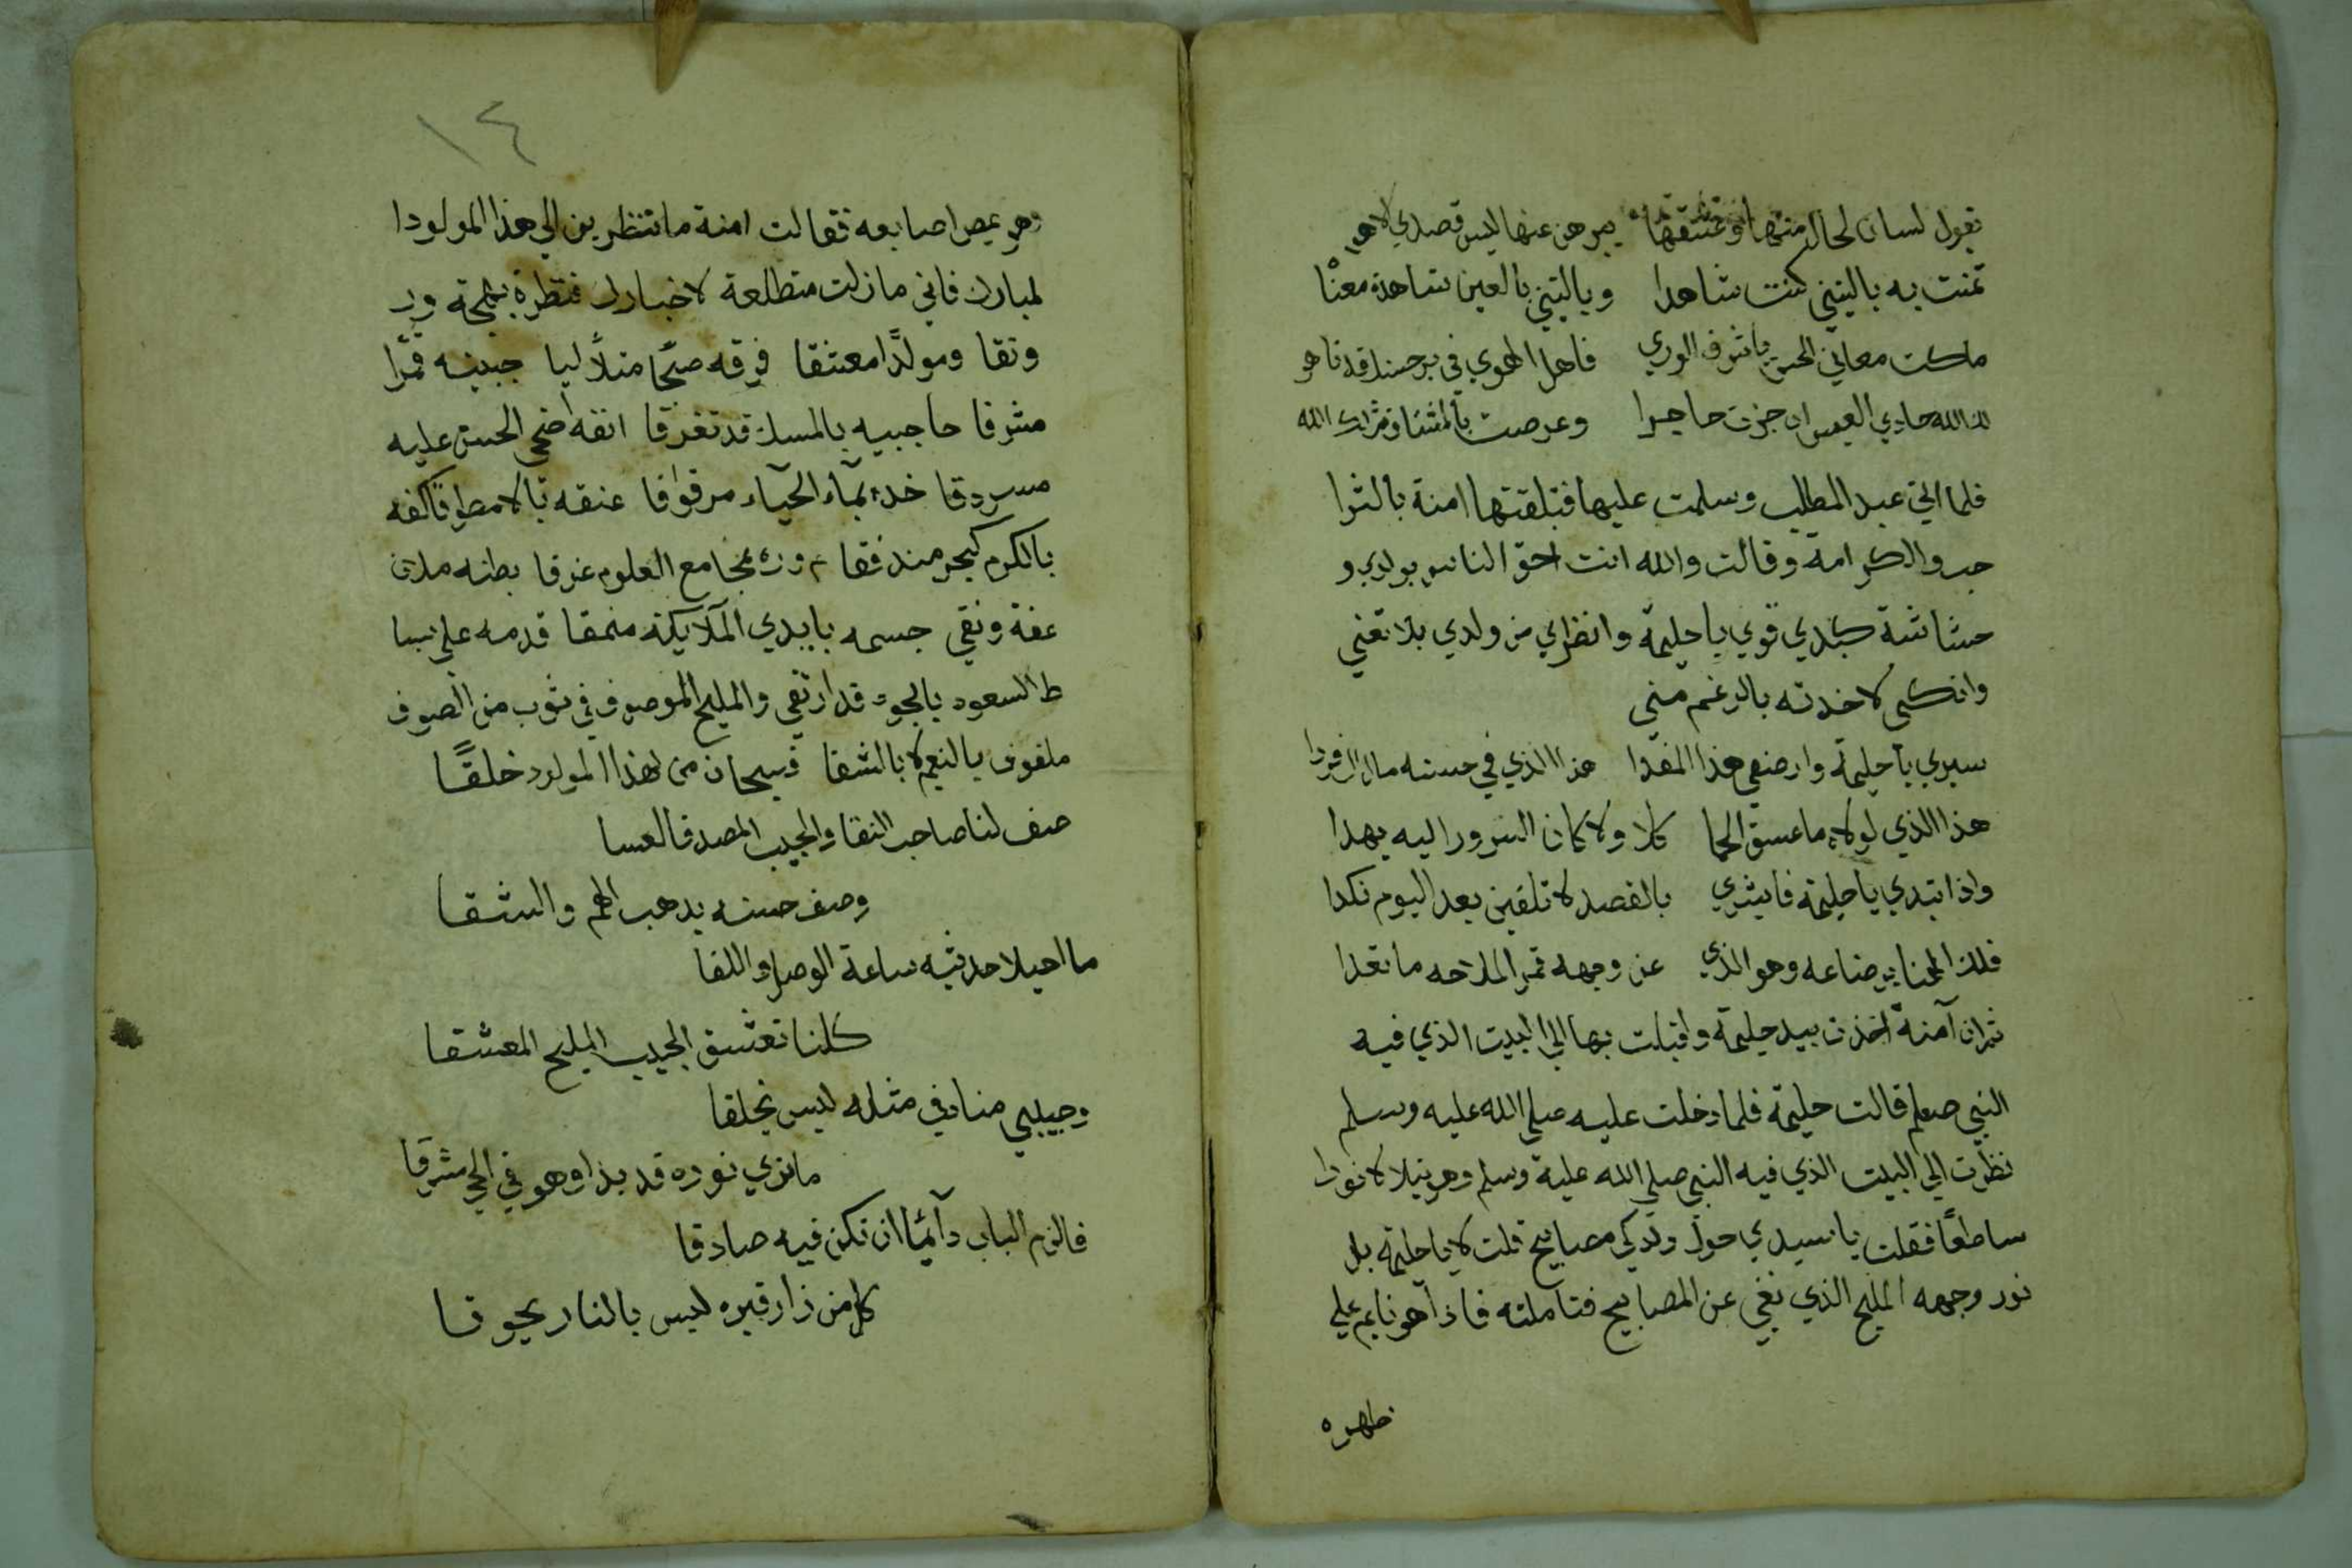 تقول لسان لحال منتها وتمتقها يبرهن عنها ليس قصدي لاهو
تمنت به ياليتني كنت شاهدا وياليتني بالعين شاهدة معنا
ملكت معاني الحسن يا شرف الوري فاهل الهوي في بر حسنك قد تاهو
لك الله حادي العيس ان جزت حاجرا وعرصت بالمشتاق
فلما اتي عبد المطلب وسلمت عليها فتلقتها امنة بالترا
حب والكرامة وقالت والله انت احق الناس بولدي و
حشاشة كبدي قومي يا حليمة وانظري من ولدي بلا تعني
وانكي لاخدته بالرغم مني
سيري يا حليمة وارضعي هذا المفدا هذا الذي في حسنه مازال فردا
هذا الذي لولاه ما عسق الحما كلا ولا كان السرور اليه يهدا
واذا تبدي يا حليمة فابشري بالقصد لا تلقين بعد اليوم نكدا
فلك الهنا برضاعه وهو الذي عن وجهه قمر الملاحه ما تعدا
ثم ان آمنة اخذت بيد حليمة واقبلت بها الي البيت الذي فيه
النبي صعلم قالت حليمة فلما دخلت عليه صلي الله عليه وسلم
نظرت الي البيت الذي فيه النبي صلي الله عليه وسلم وهو يتلالا نورا
ساطعا فقلت يا سيدي حول ولدكي مصابيح قلت لا يا حليمة بل
نور وجهه المليح الذي يغني عن المصابيح فتاملته فاذا هو نايم علي
ظهره
١٤
وهو يمص اصابعه فقالت امنة ما تنظرين الي هذا المولودا
لمبارك فاني ما زلت متطلعة لاخبارك فنظرة بهجة ور
ونقا ومولدا معتنقا فرقه صبحا متلاليا جبينه قمرا
مشرقا حاجبيه بالمسك قد تفرقا انفه اضحي الحسن عليه
مسردقا خده بماء الحياء مرقوقا عنقه بالا مطوقا كفه
بالكرم كبحر مندفقا صدره بمجامع العلوم غرقا بطنه ملان
عفة ونقي جسمه بايدي الملايكة منمقا قدمه علي بسا
ط السعود بالجود قد ارتقي والمليح الموصوف في ثوب من الصوف
ملفوف بالنعيم لا بالشقا فسبحان من لهذا المولود خلقا
صف لنا صاحب النقا والحبيب المصدقا لعسا
وصف حسنه يدهب الهم والشقا
ما احيلا حديثه ساعة الوصل واللقا
كلنا نعشق الحبيب المليح المعشقا
وحبيبي منا وفي مثله ليس يخلقا
ما نري نوره قد بدا وهو في الحي مشرقا
فالزم الباب دآئما ان تكن فيه صادقا
كل من زار قبره ليس بالنار يحرقا